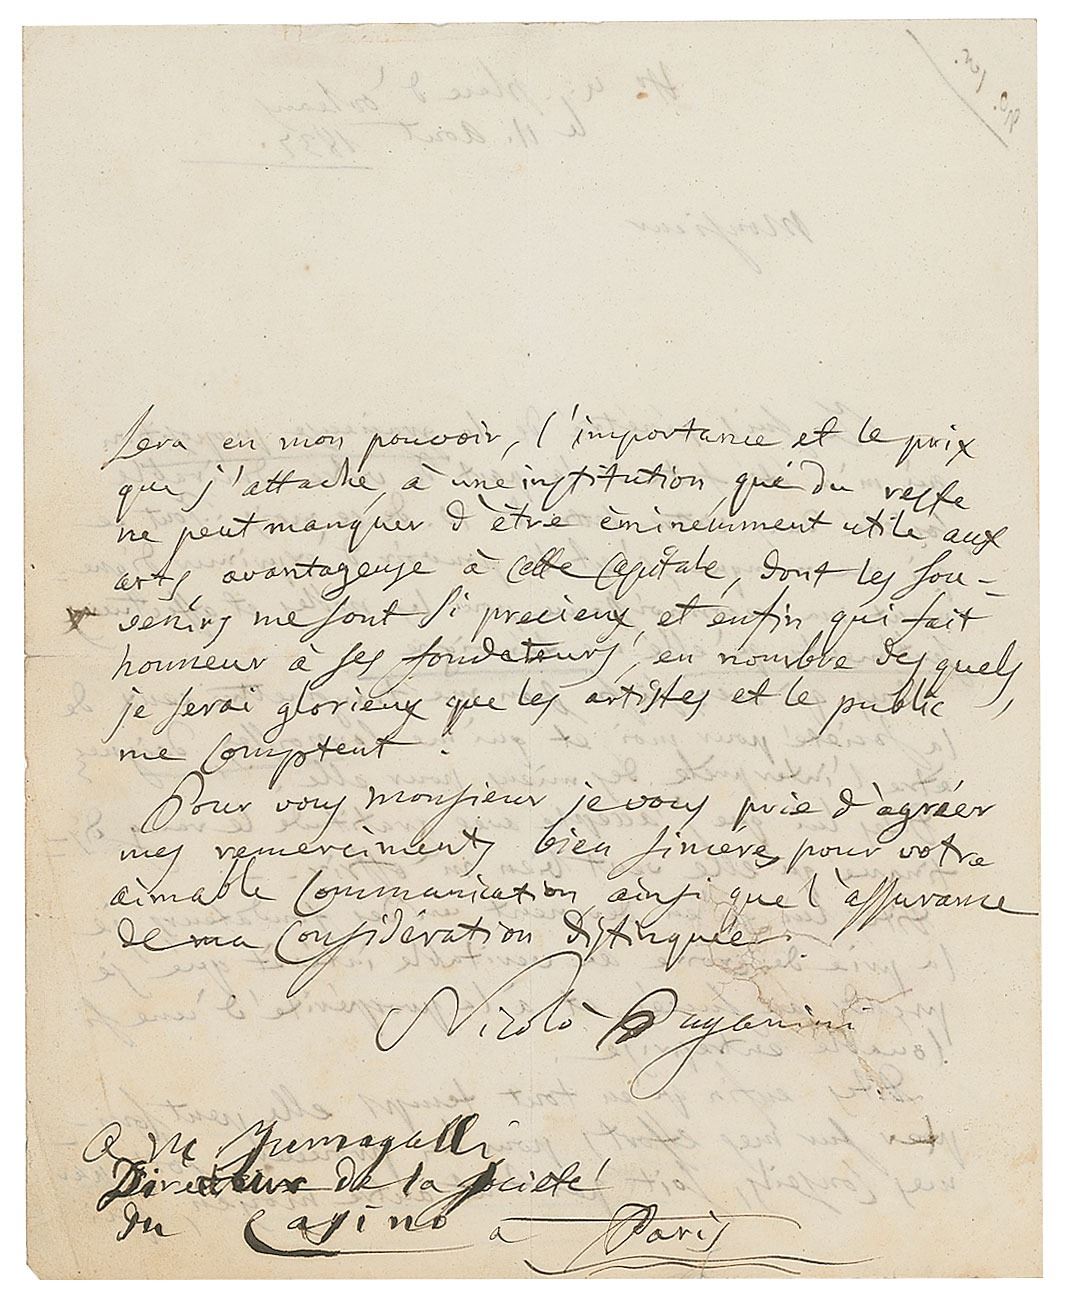 sera en mon pouvoir, l'importance et le prix
que j'attache, à une institution, qué du reste
ne peut manquer d'être éminemment utile aux
arts, avantageuse à cette Capitale, dont les sou-
venirs me sont si precieux, et enfin qui fait
honneur à ses fondateurs, en nombre des quels,
je serai glorieux que les artistes et le public
me comptent.
Pour vous monsieur je vous prie d'agréer
mes remerciments bien sincéres pour votre
aimable Communication ainsi que l'assurance
de ma Considération distinguée.
Nicolò Paganini
a M Fumagalli
Directeur de la Societé
du Casino a Paris